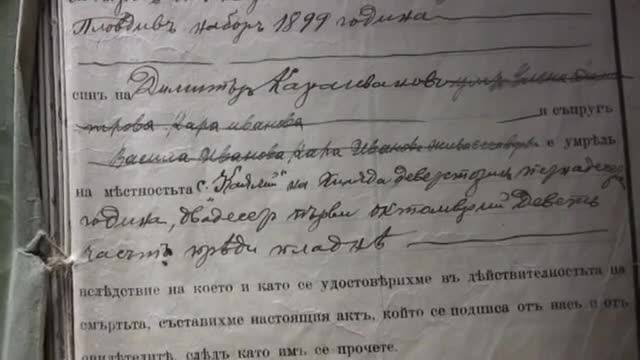 Пловдивъ наборъ 1899 година
синъ на Димитъръ Караивановъ
трова Кара иванова и съпругъ
Васила Иванова, Кара Иванова е умрѣлъ
на мѣстностьта с. на хиляда деветстотинъ
година, двадесет първи октомврий деветь
часътъ прѣди пладнѣ
вслѣдствие на което и като се удостовѣрихме въ дѣйствителностьта на
смъртьта, съставихме настоящия актъ, който се подписа отъ насъ и отъ
свидѣтелитѣ, слѣдъ като имъ се прочете.